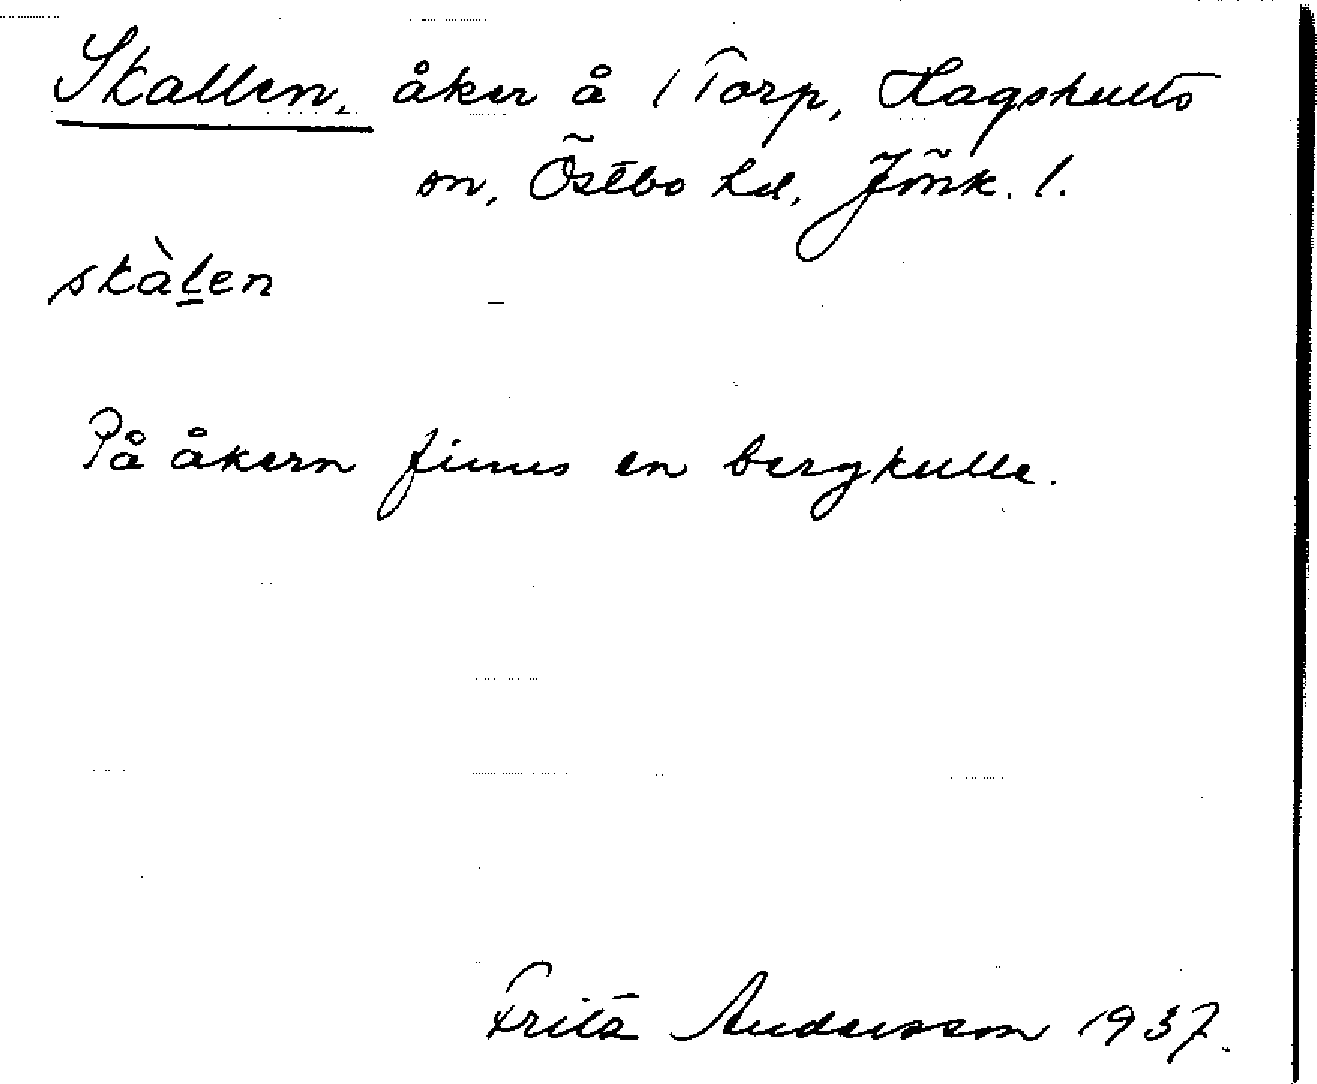 Skallen, åker å 1 Torp, Hagshults
sn, Östbo hd, Jönk. l.
skàḻen
På åkern finns en bergkulle.
Fritz Andersson 1937.